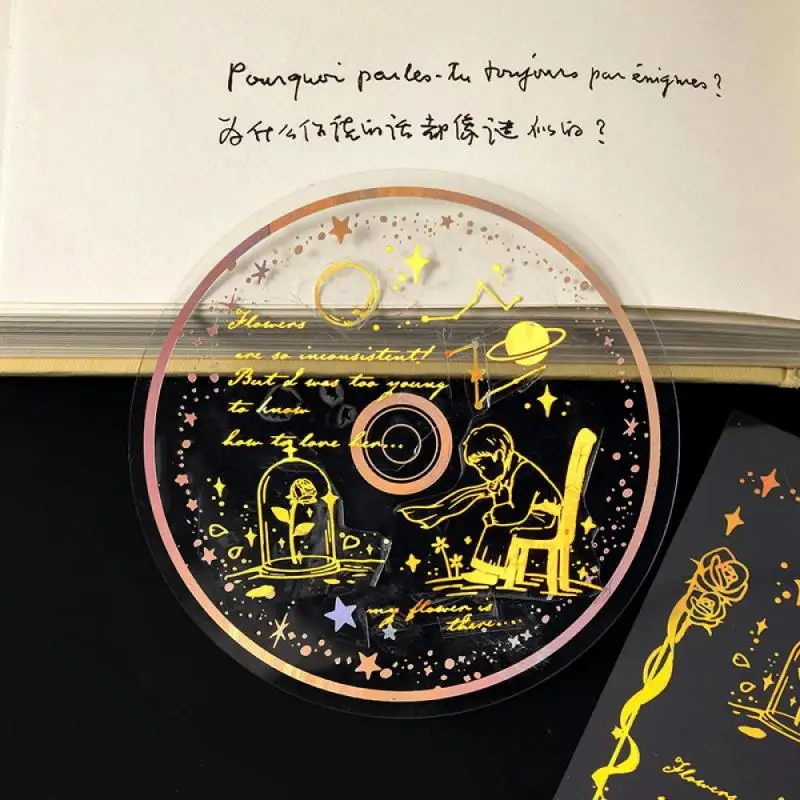 Pourquoi parles-tu toujours par énigmes?
为什么你说的话都像谜似的?
Flowers
are so inconsistent!
But I was too young
to know
how to love her...
my flower is
there....
Flowers